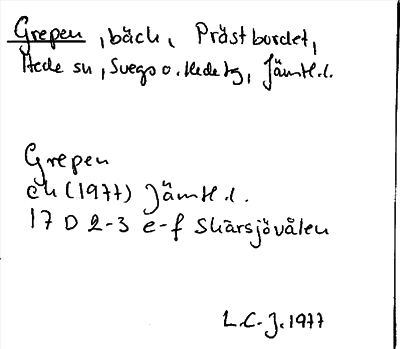 Grepen, bäck, Prästbordet,
Hede sn, Svegs o. Hede tg, Jämtl.l.
Grepen
ek (1977) Jämtl.l.
17 D 2-3 e-f Skärsjövålen
L.C.J. 1977